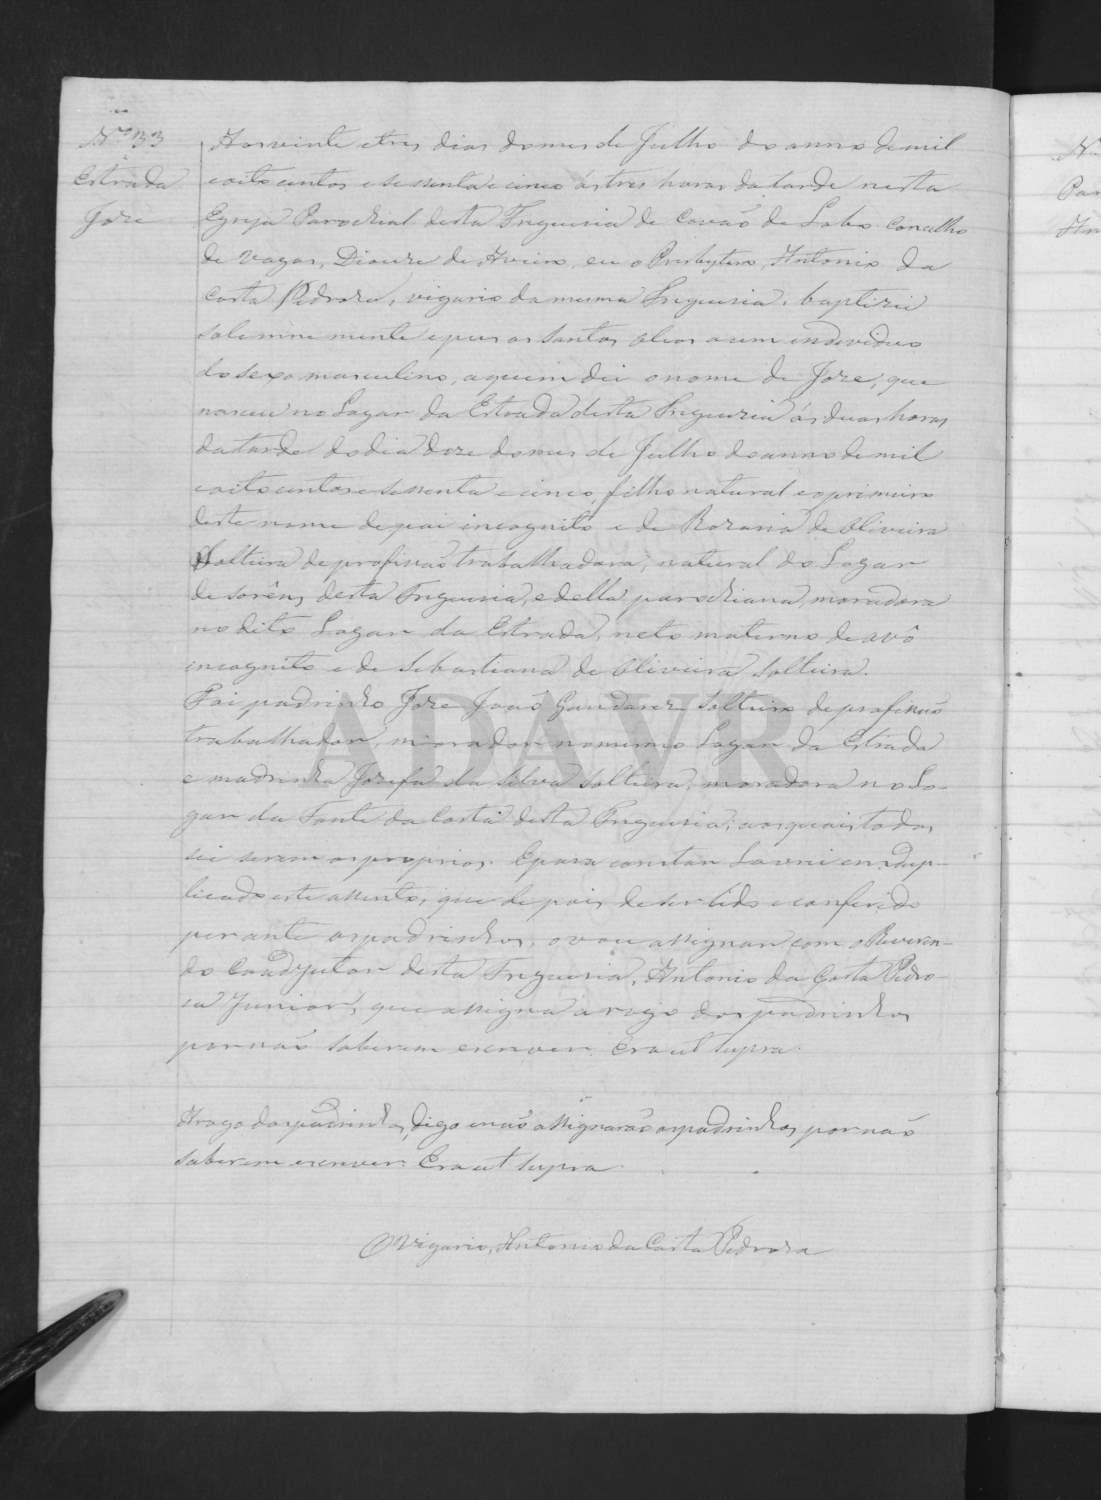 Nº 33
Estrada
Joze
Aos vinte e tres dias do mes de Julho do anno de mil
e oito centos e sessenta e cinco ás tres horas da tarde nesta
Egreja Parochial desta Freguesia de Covaõ do Lobo Concelho
de Vagos, Diocese de Aveiro, eu o Presbytero Antonio da
Costa Pedroza, vigario da mesma Freguesia, baptizei
solemnemente e pus os santos oleos a um individuo
do sexo masculino, a quem dei o nome de Joze, que
nasceu no Lugar da Estrada desta Freguezia ás duas horas
da tarde do dia doze do mes de Julho do anno de mil
e oito centos e sessenta e cinco, filho natural e o primeiro
deste nome de pai incognito e de Rozaria de Oliveira
Solteira de profissaõ trabalhadora, natural do Lugar
de desta Freguesia, e della parochiana, moradora
no dito Lugar da Estrada, neto materno de avô
incognito e de Sebastiana de Oliveira Solteira.
Foi padrinho Joze Joaõ Gandarez Solteiro de profissaõ
trabalhador, morador no mesmo Lugar da Estrada
e madrinha Jozefa da Silva Solteira, moradora no Lu-
gar da Fonte da Costa desta Freguesia, aos quais todos
sei serem os proprios. E para constar Lavrei em dup-
licado este assento, que depois de ser lido e conferido
perante os padrinhos, o vou assignar com o Reveren-
do Coadjutor desta Freguesia, Antonio da Costa Pedro-
za Junior, que assigna a rogo dos padrinhos
por naõ saberem escrever. Era ut supra.
A rogo dos padrinhos, digo e naõ assignaraõ os padrinhos por naõ
saberem escrever. Era ut supra
O Vigario, Antonio da Costa Pedroza
ADAVR